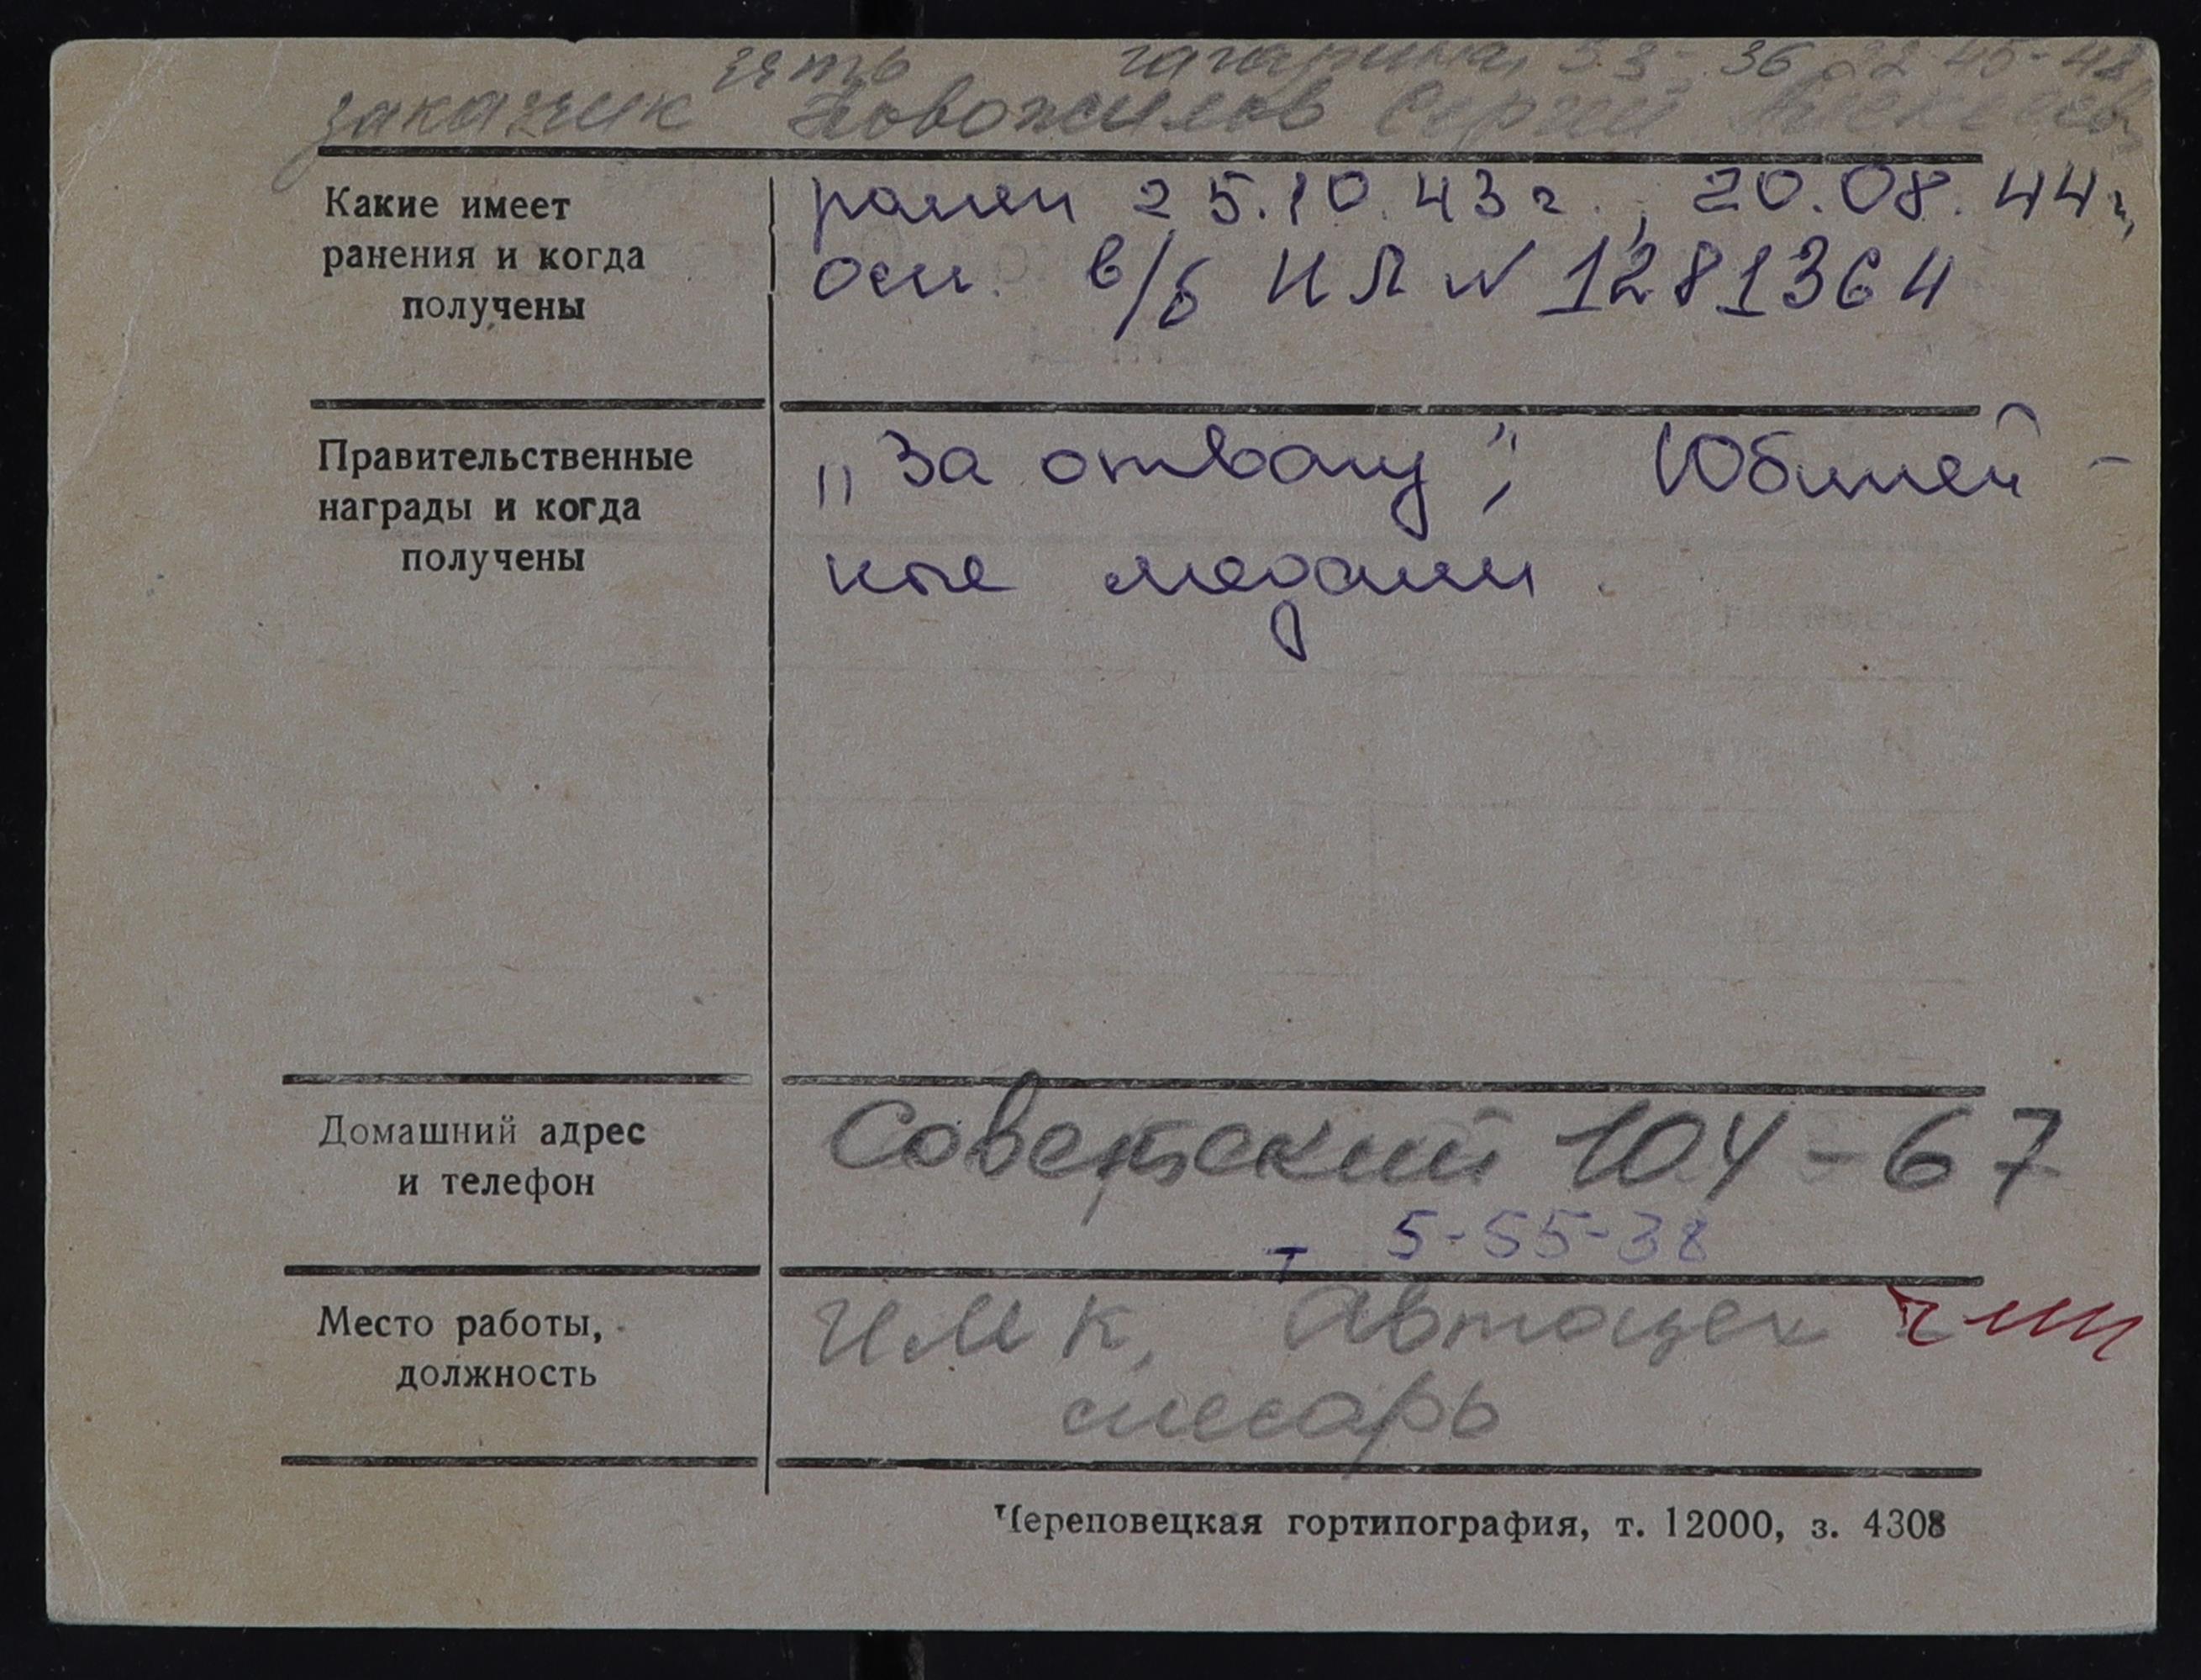 зять Гагарина, 33-36, 22-45-48
заказчик Новожилов Сергей Алексеев
Какие имеет
ранения и когда
получены
ранен 25.10.43г., 20.08.44г,
осн. в/б НЛ № 1281364
Правительственные
награды и когда
получены
„За отвагу", Юбилей-
ные медали.
Домашний адрес
и телефон
Советский 104-67
т 5-55-38
Место работы,
должность
ЧМК, Автоцех
слесарь
Череповецкая гортипография, т. 12000, з. 4308